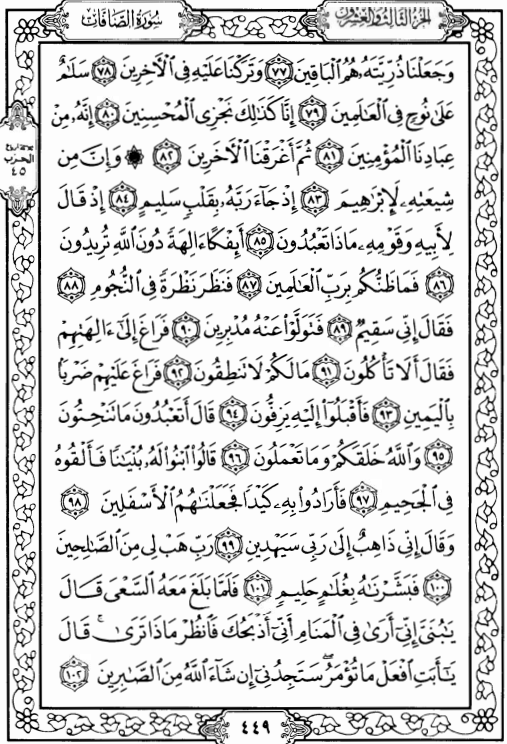 سورة الصافات
الجزء الثالث والعشرون
وَجَعَلْنَا ذُرِّيَّتَهُۥ هُمُ ٱلْبَاقِينَ ٧٧ وَتَرَكْنَا عَلَيْهِ فِى ٱلْأَخِرِينَ ٧٨ سَلَٰمٌ
عَلَىٰ نُوحٍ فِى ٱلْعَٰلَمِينَ ٧٩ إِنَّا كَذَٰلِكَ نَجْزِى ٱلْمُحْسِنِينَ ٨٠ إِنَّهُۥ مِنْ
عِبَادِنَا ٱلْمُؤْمِنِينَ ٨١ ثُمَّ أَغْرَقْنَا ٱلْأَخَرِينَ ٨٢ ۞ وَإِنَّ مِن
شِيعَتِهِۦ لَإِبْرَٰهِيمَ ٨٣ إِذْ جَآءَ رَبَّهُۥ بِقَلْبٍ سَلِيمٍ ٨٤ إِذْ قَالَ
لِأَبِيهِ وَقَوْمِهِۦ مَاذَا تَعْبُدُونَ ٨٥ أَئِفْكًا ءَالِهَةً دُونَ ٱللَّهِ تُرِيدُونَ
٨٦ فَمَا ظَنُّكُم بِرَبِّ ٱلْعَٰلَمِينَ ٨٧ فَنَظَرَ نَظْرَةً فِى ٱلنُّجُومِ ٨٨
فَقَالَ إِنِّى سَقِيمٌ ٨٩ فَتَوَلَّوْا۟ عَنْهُ مُدْبِرِينَ ٩٠ فَرَاغَ إِلَىٰٓ ءَالِهَتِهِمْ
فَقَالَ أَلَا تَأْكُلُونَ ٩١ مَا لَكُمْ لَا تَنطِقُونَ ٩٢ فَرَاغَ عَلَيْهِمْ ضَرْبًۢا
بِٱلْيَمِينِ ٩٣ فَأَقْبَلُوٓا۟ إِلَيْهِ يَزِفُّونَ ٩٤ قَالَ أَتَعْبُدُونَ مَا تَنْحِتُونَ
٩٥ وَٱللَّهُ خَلَقَكُمْ وَمَا تَعْمَلُونَ ٩٦ قَالُوا۟ ٱبْنُوا۟ لَهُۥ بُنْيَٰنًا فَأَلْقُوهُ
فِى ٱلْجَحِيمِ ٩٧ فَأَرَادُوا۟ بِهِۦ كَيْدًا فَجَعَلْنَٰهُمُ ٱلْأَسْفَلِينَ ٩٨
وَقَالَ إِنِّى ذَاهِبٌ إِلَىٰ رَبِّى سَيَهْدِينِ ٩٩ رَبِّ هَبْ لِى مِنَ ٱلصَّٰلِحِينَ
١٠٠ فَبَشَّرْنَٰهُ بِغُلَٰمٍ حَلِيمٍ ١٠١ فَلَمَّا بَلَغَ مَعَهُ ٱلسَّعْىَ قَالَ
يَٰبُنَىَّ إِنِّىٓ أَرَىٰ فِى ٱلْمَنَامِ أَنِّىٓ أَذْبَحُكَ فَٱنظُرْ مَاذَا تَرَىٰ ۚ قَالَ
يَٰٓأَبَتِ ٱفْعَلْ مَا تُؤْمَرُ ۖ سَتَجِدُنِىٓ إِن شَآءَ ٱللَّهُ مِنَ ٱلصَّٰبِرِينَ ١٠٢
الحزب
٤٥
٤٤٩